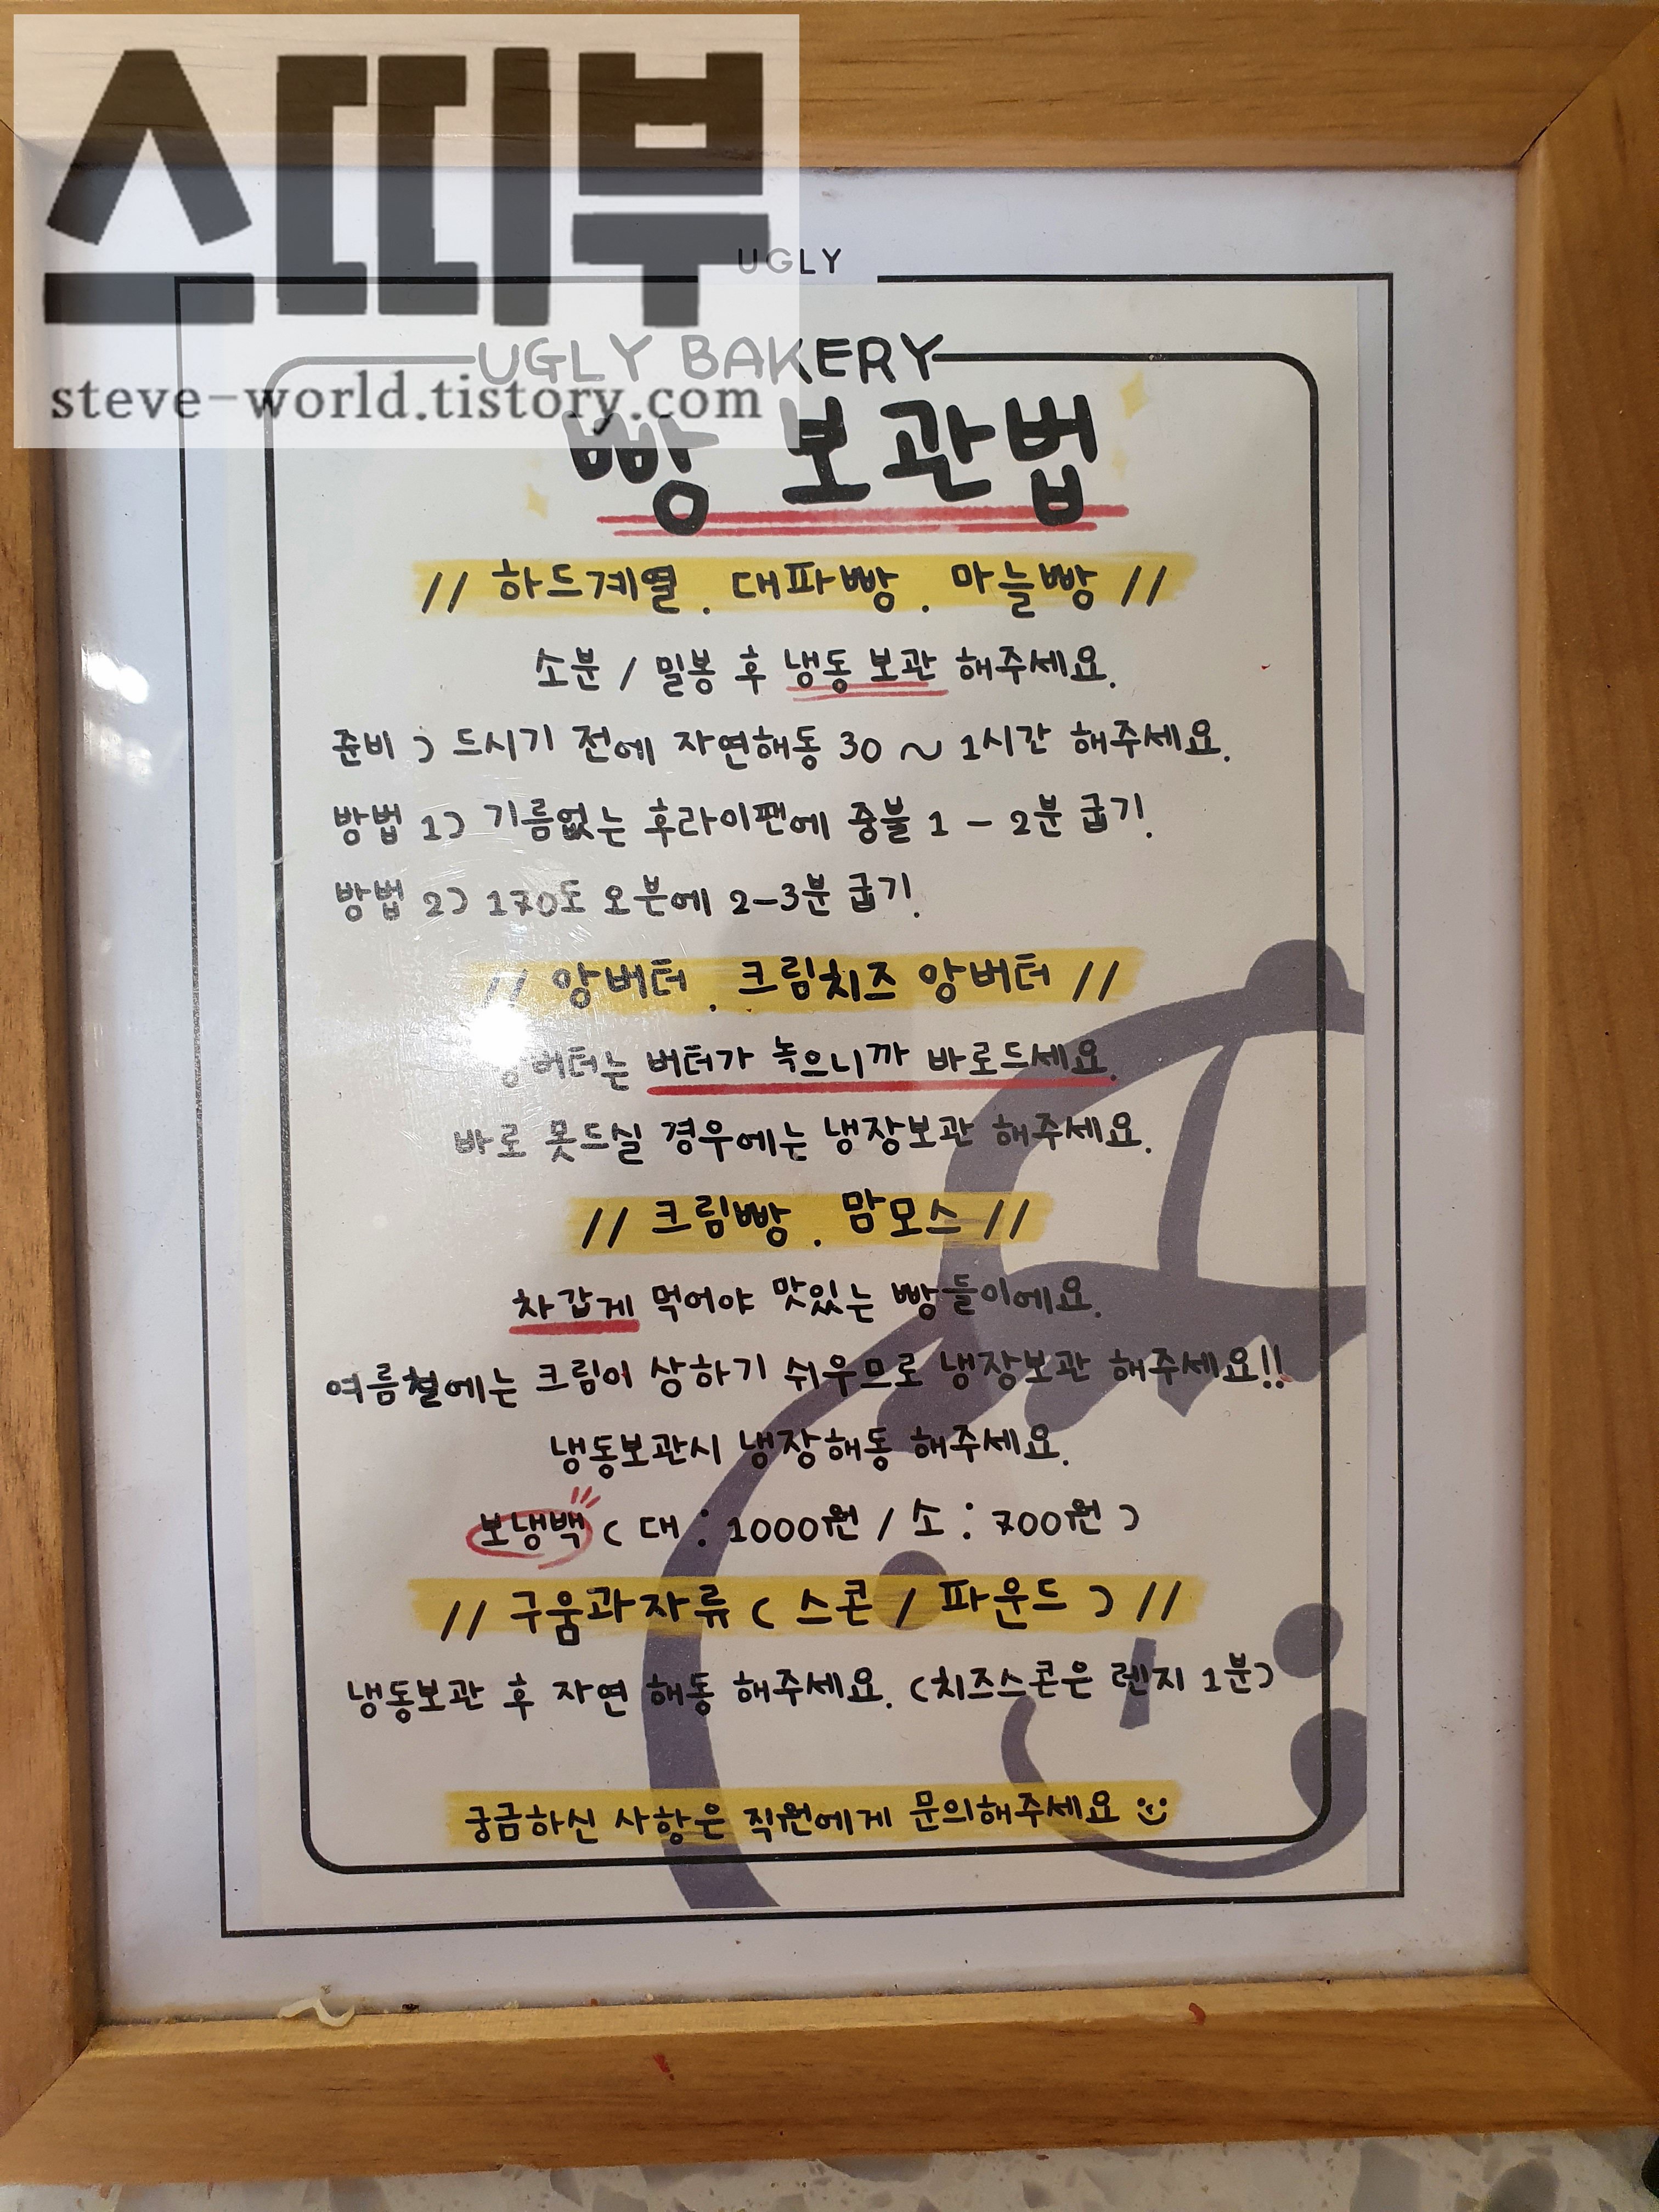 스띠부
steve-world.tistory.com
UGLY
UGLY BAKERY
빵 보관법
// 하드계열 . 대파빵 . 마늘빵 //
소분 / 밀봉 후 냉동 보관 해주세요.
준비 ) 드시기 전에 자연해동 30 ~ 1시간 해주세요.
방법 1) 기름없는 후라이팬에 중불 1 - 2분 굽기.
방법 2) 170도 오븐에 2-3분 굽기.
// 앙버터 . 크림치즈 앙버터 //
앙버터는 버터가 녹으니까 바로드세요.
바로 못드실 경우에는 냉장보관 해주세요.
// 크림빵 . 맘모스 //
차갑게 먹어야 맛있는 빵들이에요.
여름철에는 크림이 상하기 쉬우므로 냉장보관 해주세요!!
냉동보관시 냉장해동 해주세요.
보냉백 ( 대 : 1000원 / 소 : 700원 )
// 구움과자류 ( 스콘 / 파운드 ) //
냉동보관 후 자연 해동 해주세요. (치즈스콘은 렌지 1분)
궁금하신 사항은 직원에게 문의해주세요